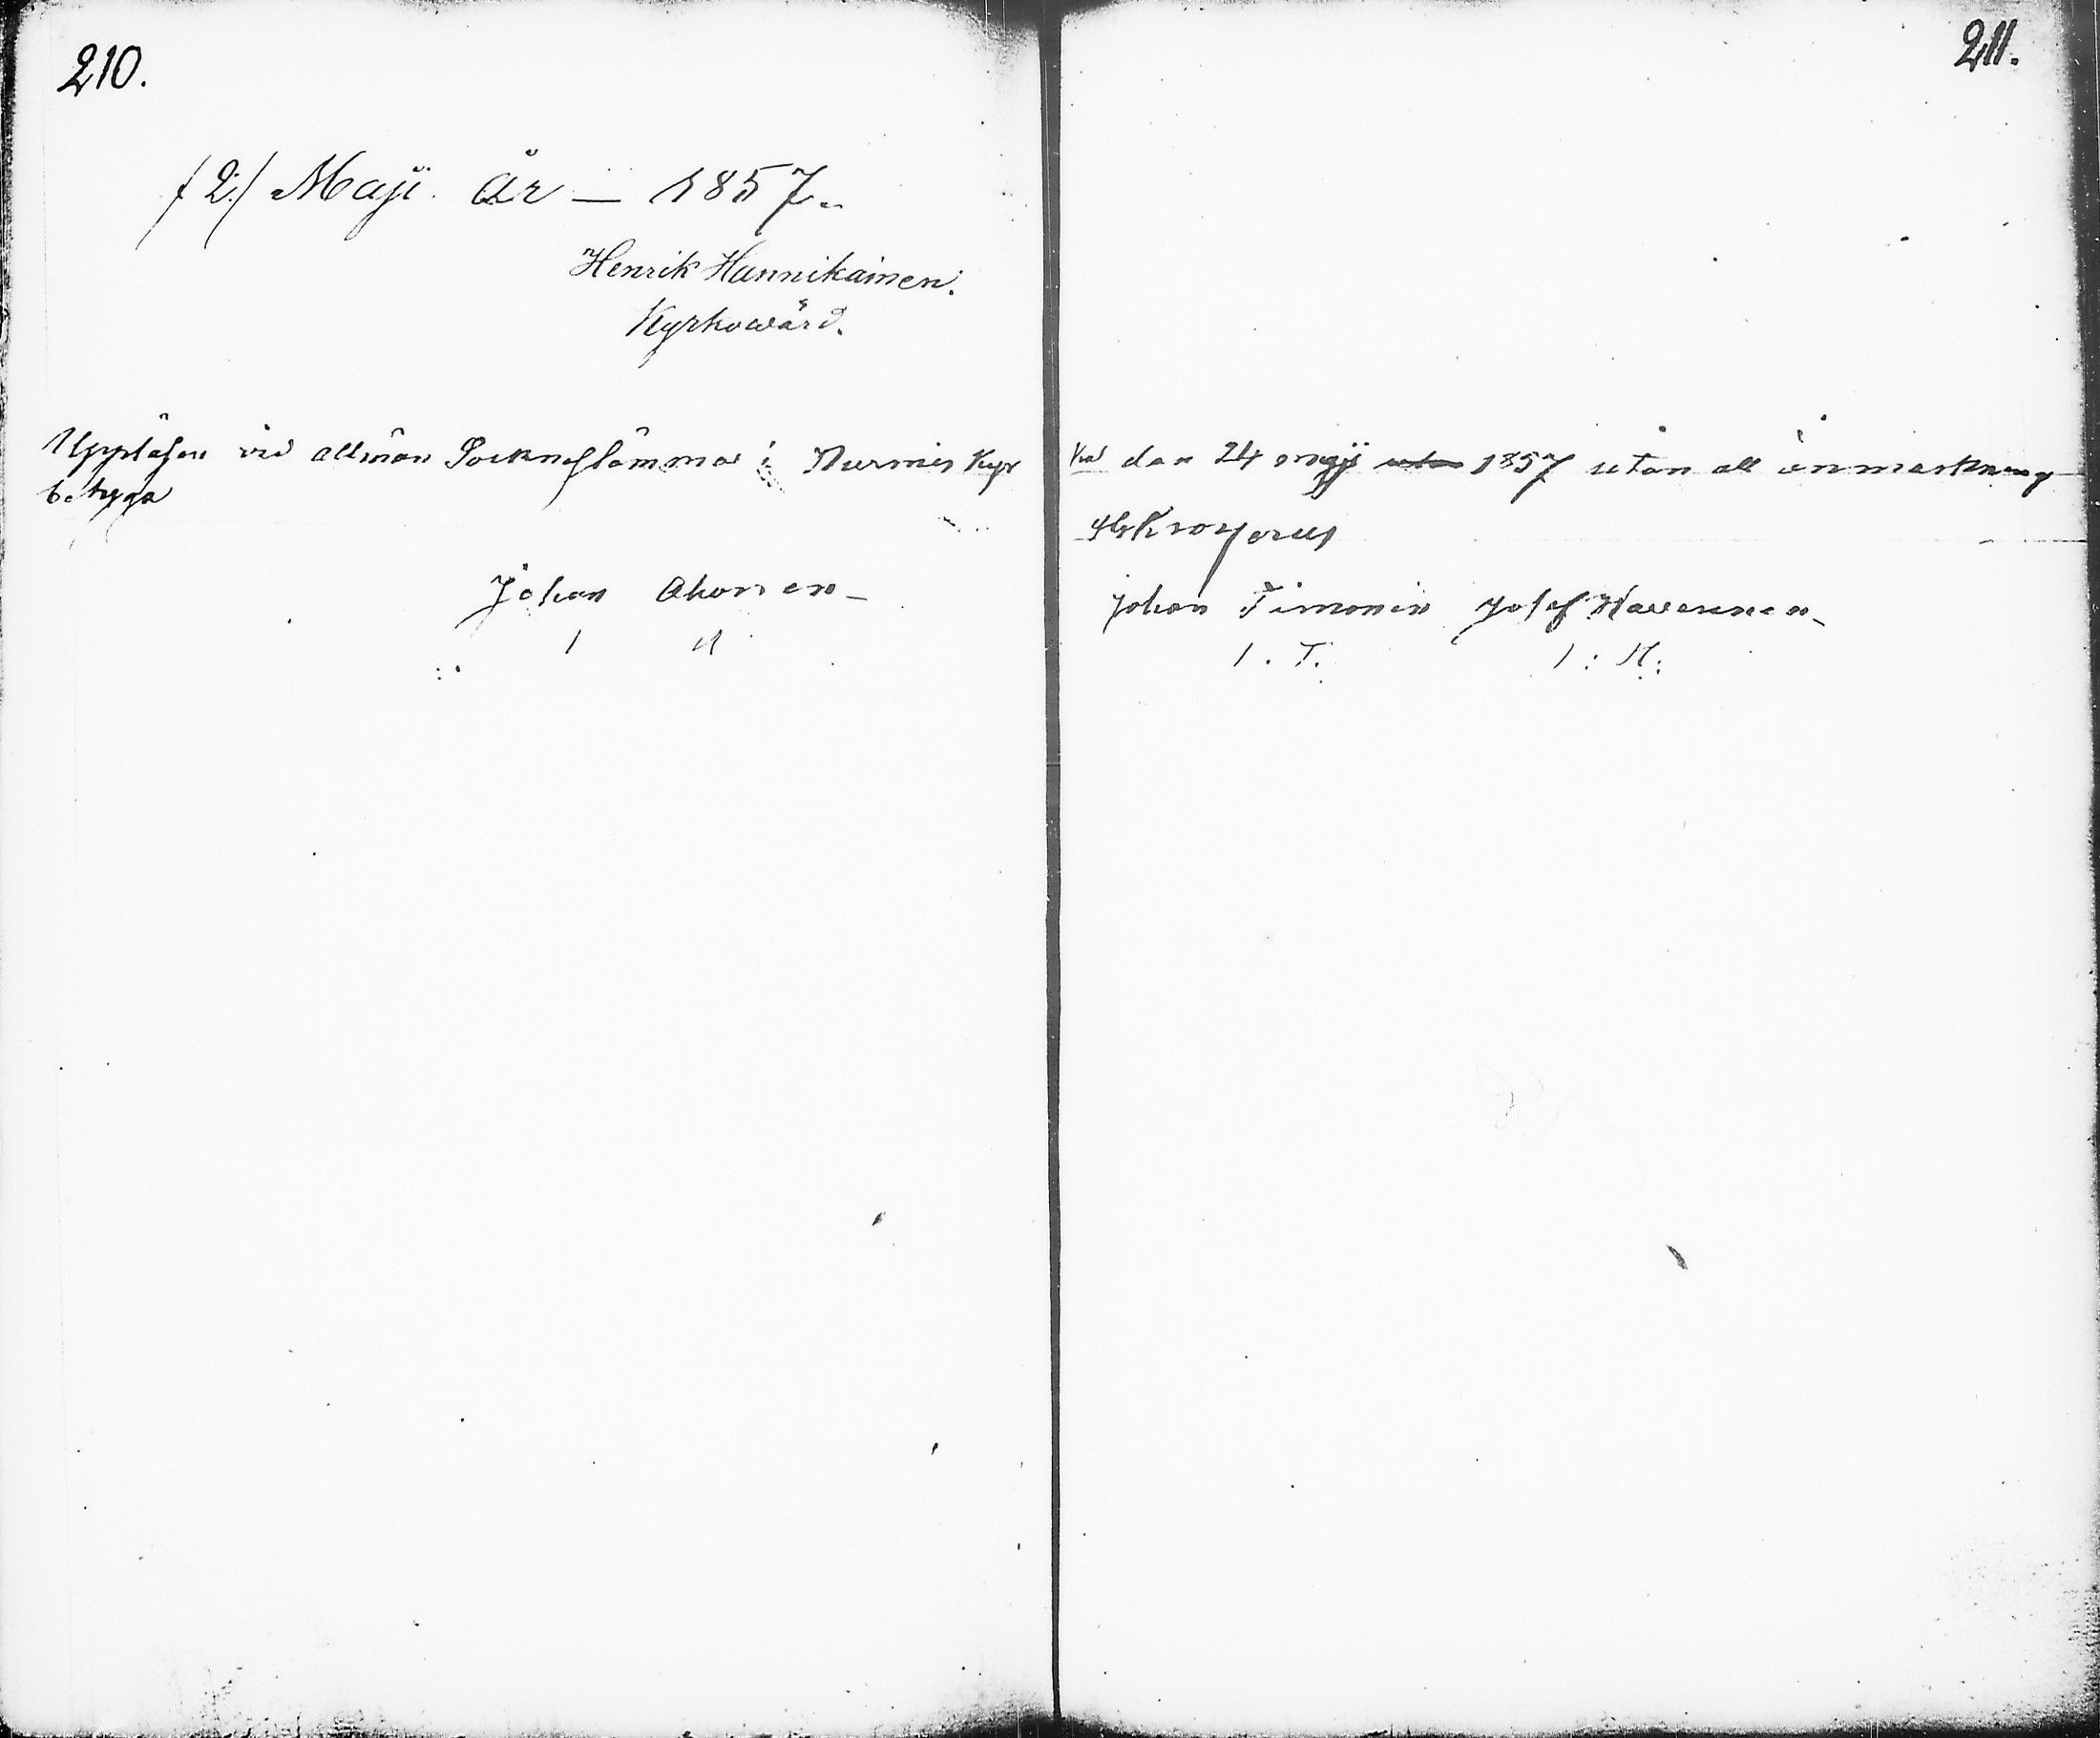 210.
/2:/ Maji. År — 1857.
Henrik Hannikainen.
Kyrkowärd.
Uppläsen vid allmän Socknestämma i Nurmis Kyr
betyga
Johan Ahonen
I A
211.
den 24 maji utan 1857 utan all anmärkning
Johan Timonen Josef
I. T. I: H: